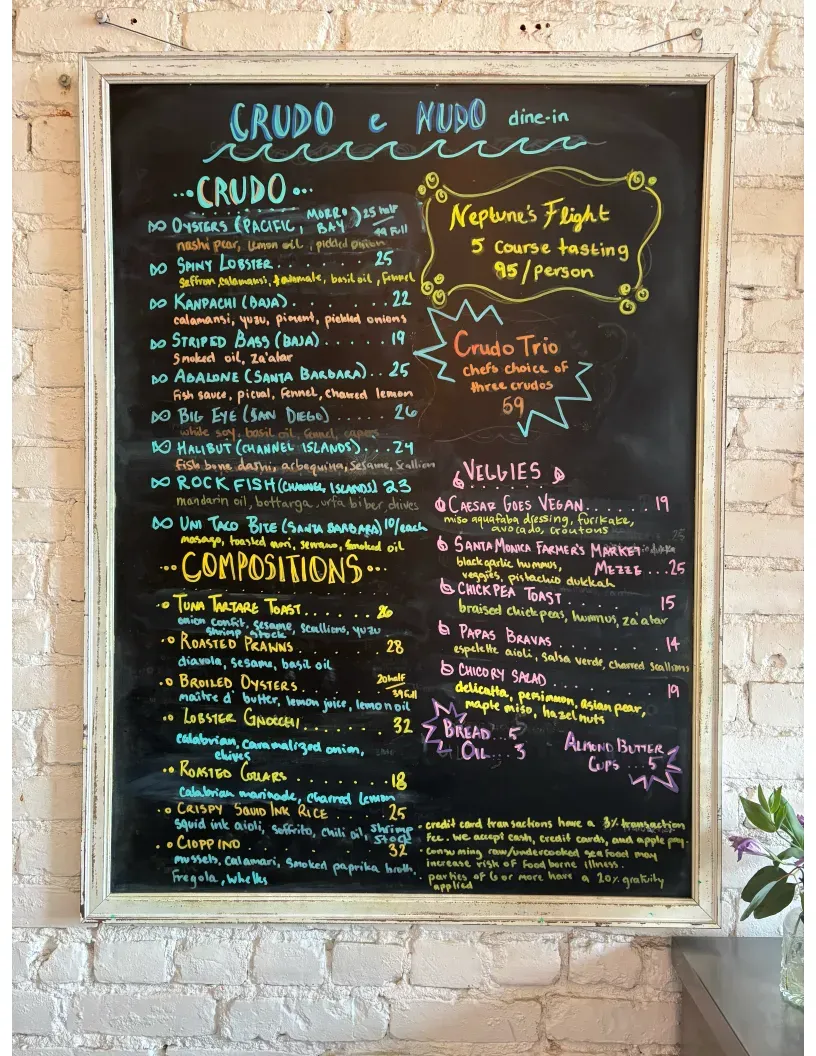 CRUDO e NUDO dine-in
CRUDO
OYSTERS (PACIFIC, MORRO BAY) 25 half
49 Full
nashi pear, lemon oil, pickled onion
SPINY LOBSTER . . . . . . . . . . 25
saffron, calamansi, basil oil, fennel
KANPACHI (BAJA) . . . . . . . . . 22
calamansi, yuzu, piment, pickled onions
STRIPED BASS (BAJA) . . . . . . 19
Smoked oil, za'atar
ABALONE (SANTA BARBARA) . . 25
fish sauce, picual, fennel, charred lemon
BIG EYE (SAN DIEGO) . . . . . . 26
white soy, basil oil, fennel, capers
HALIBUT (CHANNEL ISLANDS) . . . 24
fish bone dashi, arbequina, sesame, scallion
ROCK FISH (CHANNEL ISLANDS) 23
mandarin oil, bottarga, urfa biber, chives
UNI TACO BITE (SANTA BARBARA) 10/each
masago, toasted nori, serrano, smoked oil
COMPOSITIONS
TUNA TARTARE TOAST . . . . . . . 26
onion confit, sesame, scallions, yuzu
shrimp stock
ROASTED PRAWNS . . . . . . . . 28
diavola, sesame, basil oil
BROILED OYSTERS . . . . . . 20 half
39 Full
maître d' butter, lemon juice, lemon oil
LOBSTER GNOCCHI . . . . . . . . 32
calabrian, caramalized onion,
chives
ROASTED COLLARS . . . . . . . . 18
Calabrian marinade, charred lemon
CRISPY SQUID INK RICE . . . . 25
squid ink aioli, soffrito, chili oil, shrimp
stock
CIOPPINO . . . . . . . . . . . . 32
mussels, calamari, smoked paprika broth,
fregola, whelks
Neptune's Flight
5 course tasting
95/person
Crudo Trio
chefs choice of
three crudos
59
VEGGIES
CAESAR GOES VEGAN . . . . . . . 19
miso aquafaba dressing, furikake,
avocado, croutons
SANTA MONICA FARMER'S MARKET
MEZZE . . . 25
black garlic hummus,
veggies, pistachio dukkah
CHICKPEA TOAST . . . . . . . . 15
braised chickpeas, hummus, za'atar
PAPAS BRAVAS . . . . . . . . . . 14
espelette aioli, salsa verde, charred scallions
CHICORY SALAD . . . . . . . . . 19
delicatta, persimmon, asian pear,
maple miso, hazelnuts
BREAD . . 5
OIL . . . 3
ALMOND BUTTER
CUPS . . . 5
• credit card transactions have a 3% transaction
fee. we accept cash, credit cards, and apple pay.
• consuming raw/undercooked seafood may
increase risk of food borne illness.
• parties of 6 or more have a 20% gratuity
applied